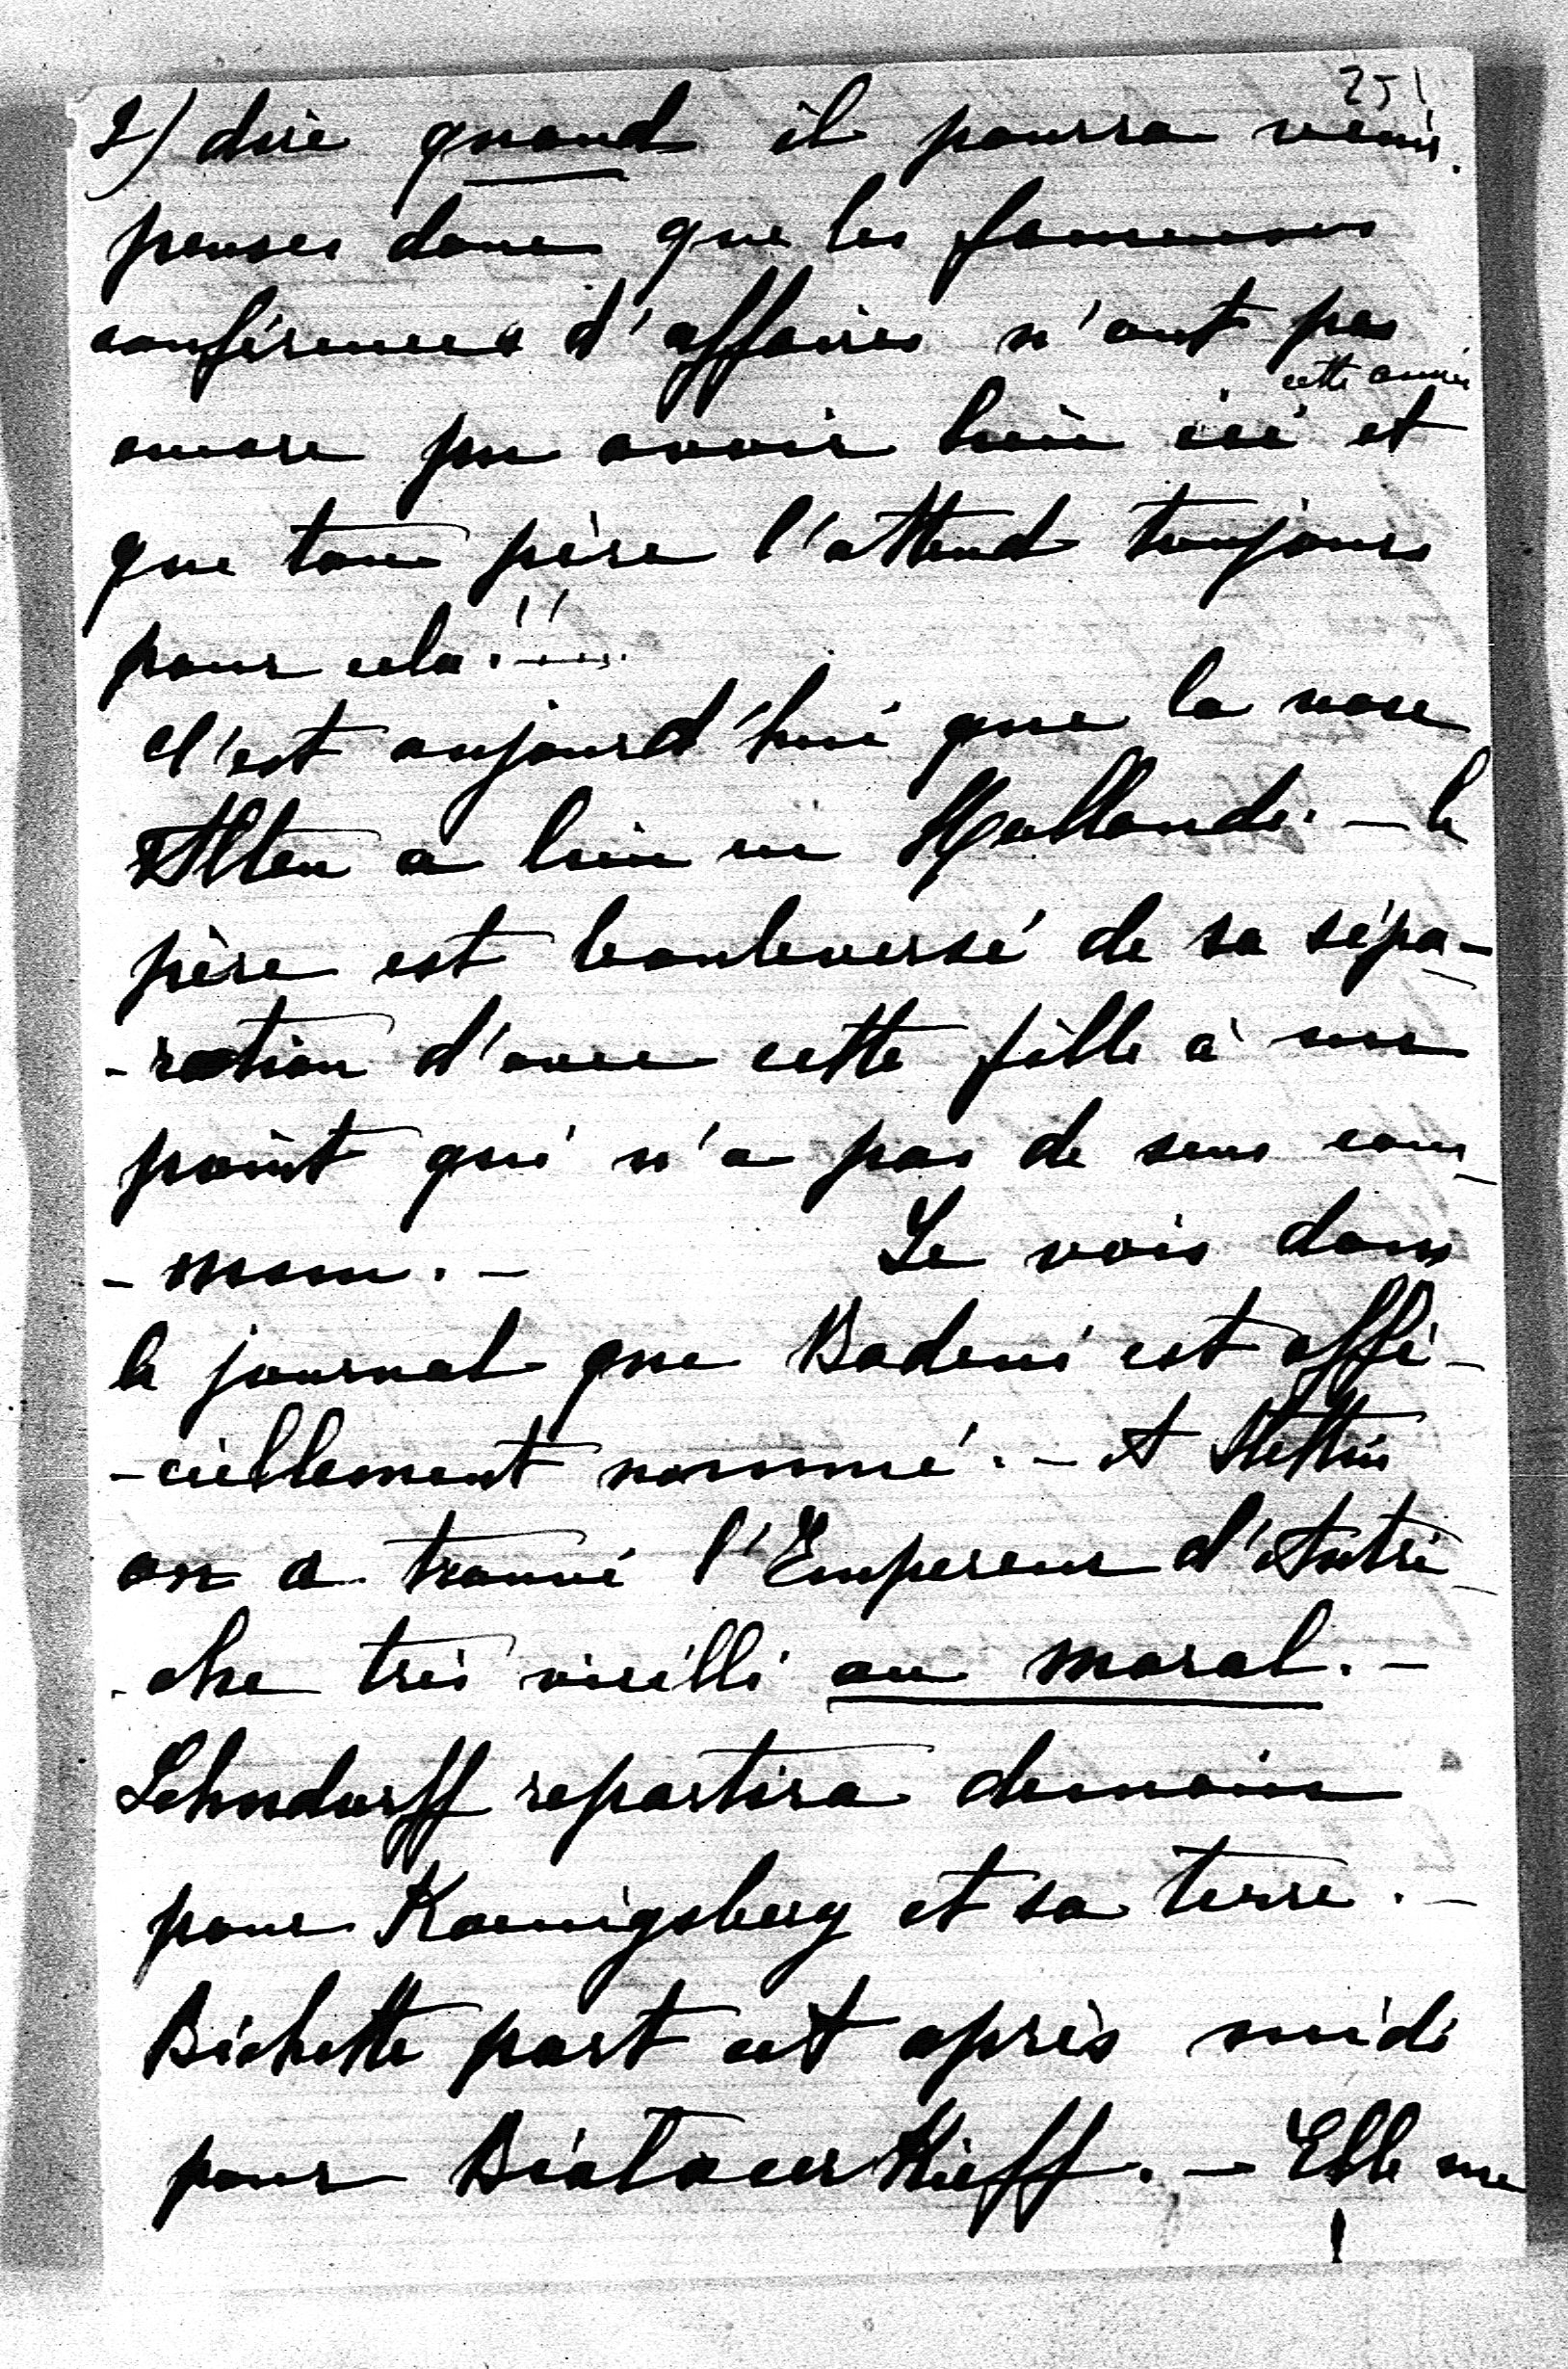 251
2) dire quand il pourra venir.
penses donc que les fameuses
conférences d'affaires n'ont pas
cette année
encore pu avoir lieu ici et
que ton père l'attend toujours
pour cela!!...
C'est aujourd'hui que la noce
Alten a lieu en Hollande. – le
père est bouleversé de sa sépa-
-ration d'avec cette fille à un
point qui n'a pas de sens com-
-mun. – Je vois dans
le journal que Badeni est offi-
-ciellement nommé. – A Stettin
on a trouvé l'Empereur d'Autri-
-che très vieilli au moral. –
Lehndorff repartira demain
pour Koenigsberg et sa terre. –
Bichette part cet après midi
pour Biała cerkieff. – Elle me